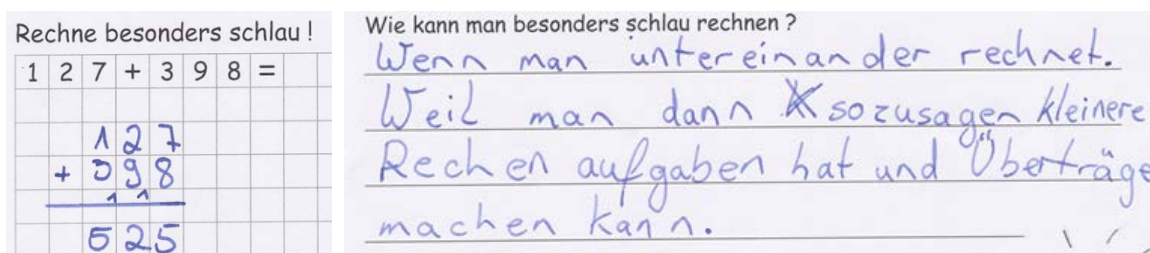 Rechne besonders schlau!
127+398=
127
+ 398
1 1
525
Wie kann man besonders schlau rechnen?
Wenn man untereinander rechnet.
Weil man dann sozusagen kleinere
Rechenaufgaben hat und Überträge
machen kann.